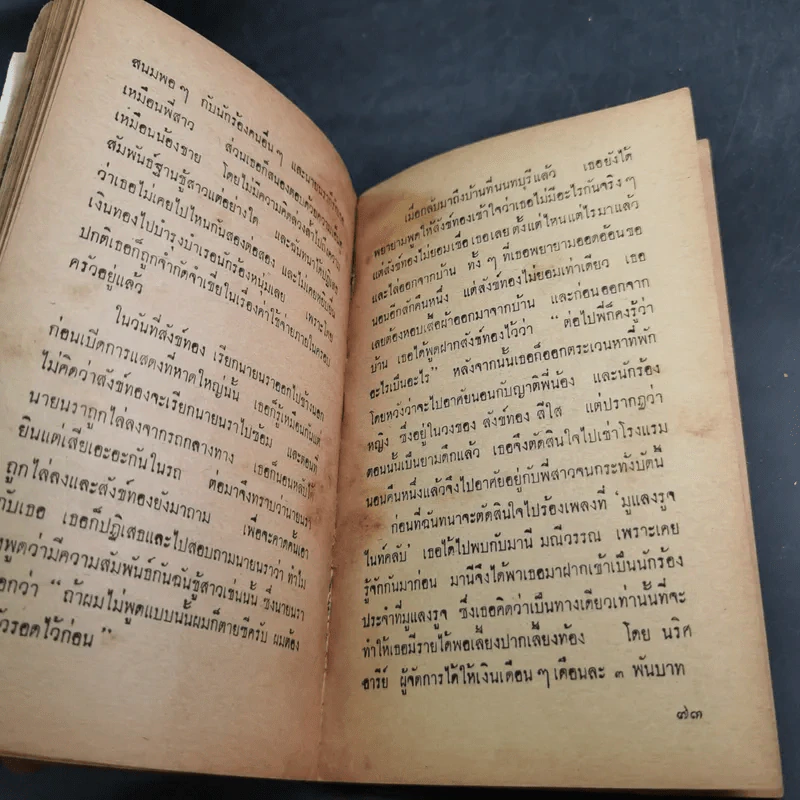 สนมพอ ๆ กับนักร้องคนอื่น ๆ และนายนราก็รักเธอ
เหมือนพี่สาว ส่วนเธอก็สนองตอบด้วยความเป็น
เหมือนน้องชาย โดยไม่มีความคิดล่วงล้ำไปถึงความ
สัมพันธ์ฐานชู้สาวแต่อย่างใด และฉันทนาได้ปฏิเสธ
ว่าเธอไม่เคยไปไหนกันสองต่อสอง และไม่เคยหยิบยื่น
เงินทองไปบำรุงบำเรอนักร้องหนุ่มเลย เพราะโดย
ปกติเธอก็ถูกจำกัดจำเขี่ยในเรื่องค่าใช้จ่ายภายในครอบ
ครัวอยู่แล้ว
ในวันที่สังข์ทอง เรียกนายนราออกไปข้างนอก
ก่อนเปิดการแสดงที่หาดใหญ่นั้น เธอก็รู้เหมือนกันแต่
ไม่คิดว่าสังข์ทองจะเรียกนายนราไปซ้อม และตอนที่
นายนราถูกไล่ลงจากรถกลางทาง เธอก็นอนหลับได้
ยินแต่เสียเอะอะกันในรถ ต่อมาจึงทราบว่านายนรา
ถูกไล่ลงและสังข์ทองยังมาถาม เพื่อจะคาดคั้นเอา
กับเธอ เธอก็ปฏิเสธและไปสอบถามนายนราว่า ทำไม
งพูดว่ามีความสัมพันธ์กันฉันชู้สาวเช่นนั้น ซึ่งนายนรา
อกว่า “ ถ้าผมไม่พูดแบบนั้นผมก็ตายซีครับ ผมต้อง
ัวรอดไว้ก่อน ”
เมื่อกลับมาถึงบ้านที่นนทบุรีแล้ว เธอยังได้
พยายามพูดให้สังข์ทองเข้าใจว่าเธอไม่มีอะไรกันจริง ๆ
แต่สังข์ทองไม่ยอมเชื่อเธอเลย ตั้งแต่ไหนแต่ไรมาแล้ว
และไล่ออกจากบ้าน ทั้ง ๆ ที่เธอพยายามออดอ้อนขอ
นอนอีกสักคืนหนึ่ง แต่สังข์ทองไม่ยอมเท่าเดียว เธอ
เลยต้องหอบเสื้อผ้าออกมาจากบ้าน และก่อนออกจาก
บ้าน เธอได้พูดฝากสังข์ทองไว้ว่า “ ต่อไปพี่ก็คงรู้ว่า
อะไรเป็นอะไร” หลังจากนั้นเธอก็ออกตระเวนหาที่พัก
โดยหวังว่าจะไปอาศัยนอนกับญาติพี่น้อง และนักร้อง
หญิง ซึ่งอยู่ในวงของ สังข์ทอง สีใส แต่ปรากฏว่า
ตอนนั้นเป็นยามดึกแล้ว เธอจึงตัดสินใจไปเช่าโรงแรม
นอนคืนหนึ่งแล้วจึงไปอาศัยอยู่กับพี่สาวจนกระทั่งบัดนี้
ก่อนที่ฉันทนาจะตัดสินใจไปร้องเพลงที่ ‘มูแลงรูจ
ไนท์คลับ’ เธอได้ไปพบกับมานี มณีวรรณ เพราะเคย
รู้จักกันมาก่อน มานีจึงได้พาเธอมาฝากเข้าเป็นนักร้อง
ประจำที่มูแลงรูจ ซึ่งเธอคิดว่าเป็นทางเดียวเท่านั้นที่จะ
ทำให้เธอมีรายได้พอเลี้ยงปากเลี้ยงท้อง โดย นริศ
อารีย์ ผู้จัดการได้ให้เงินเดือน ๆ เดือนละ ๓ พันบาท
๗๓